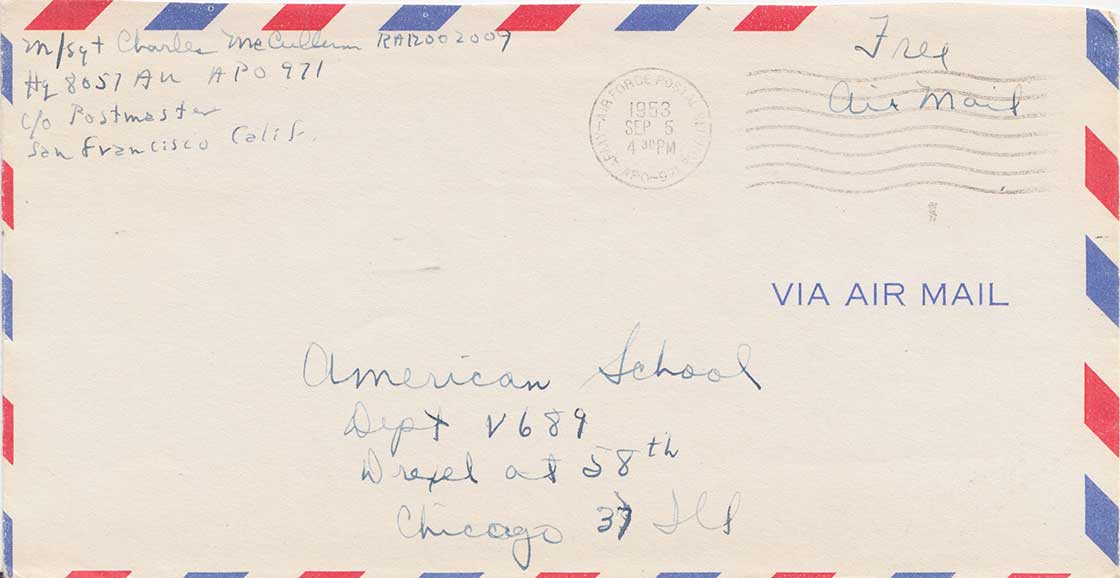 M/Sgt Charles McCullum RA12002009
Hq 8057 AU APO 971
c/o Postmaster
San Francisco Calif.
Free
Air Mail
ARMY-AIR FORCE POSTAL SERVICE
1953
SEP 5
4 30 PM
APO-971
VIA AIR MAIL
American School
Dept V689
Drexel at 58th
Chicago 37 Ill